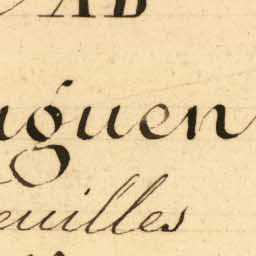 AB
guen
euilles